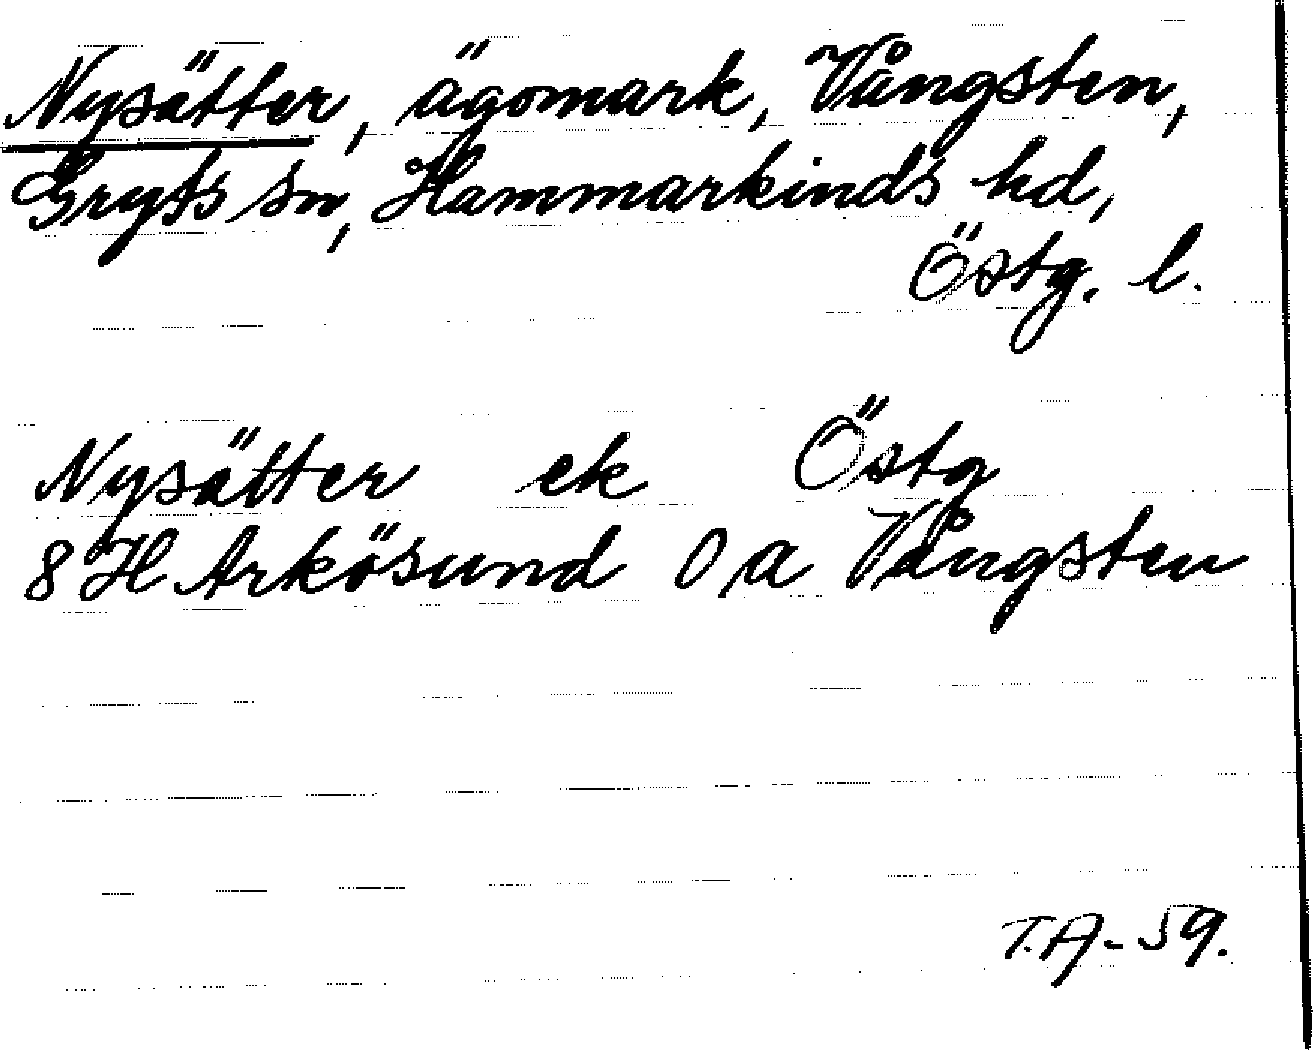 Nysätter, ägomark, Vångsten,
Gryts sn, Hammarkinds hd,
Östg. l.
Nysätter ek Östg
8 H Arkösund 0 a Vångsten
T.A-59.